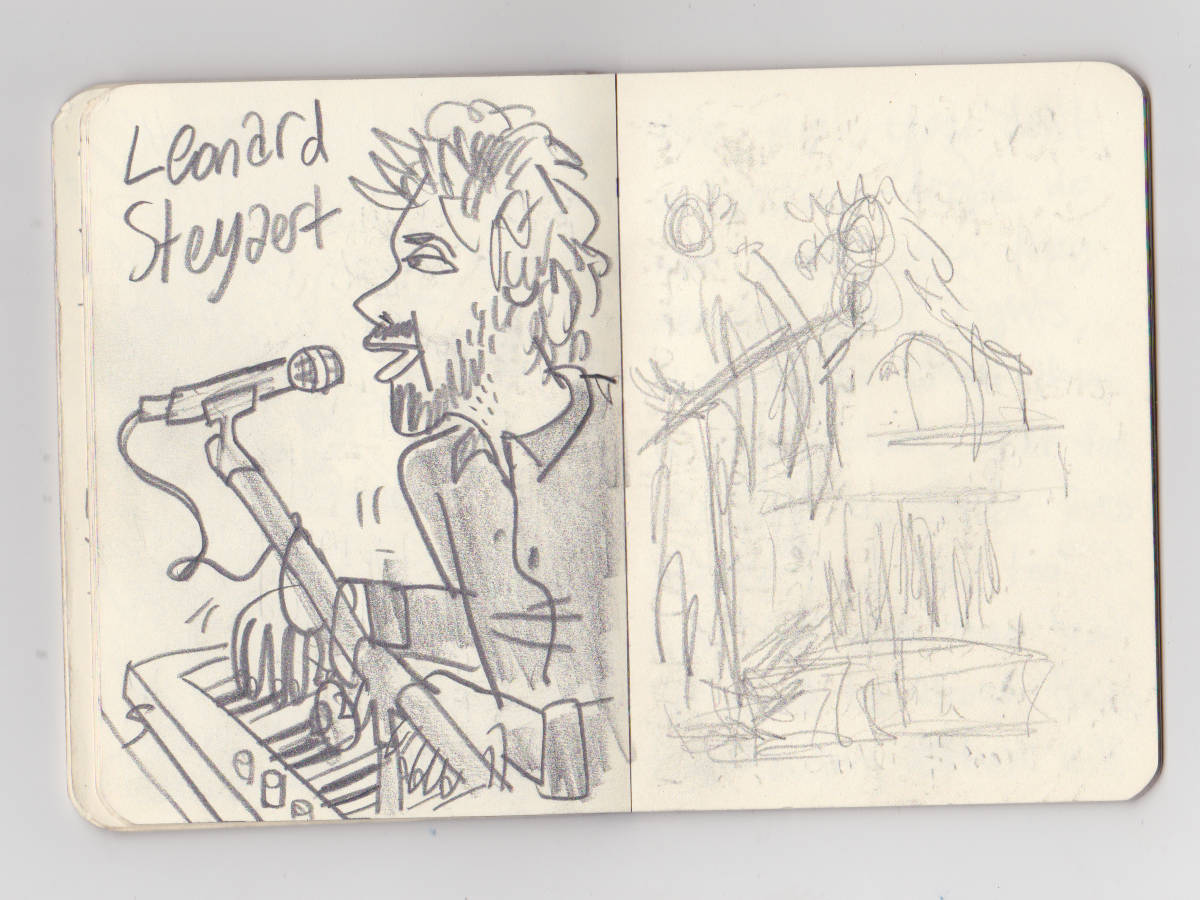 Leonard
Steyaert